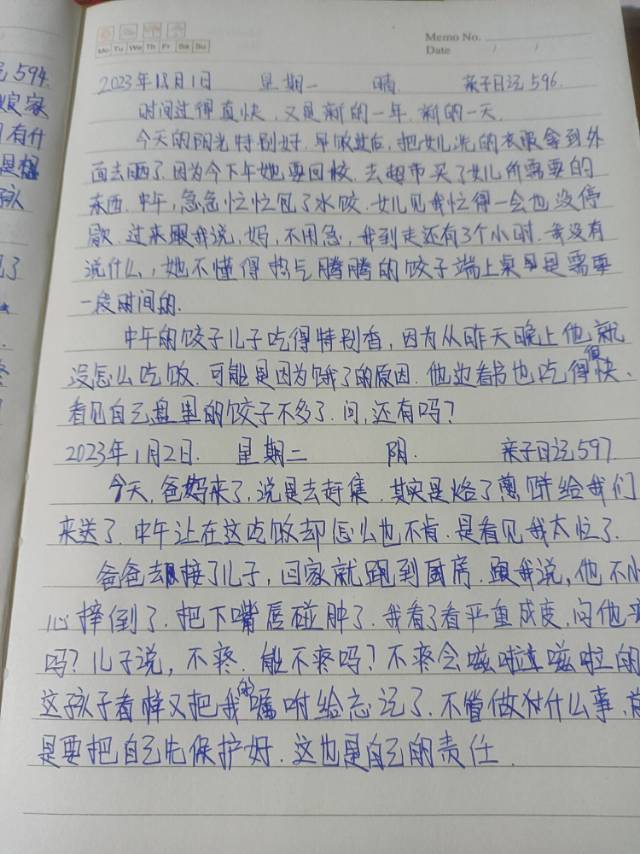 Memo No.
Mo Tu We Th Fr Sa Su
Date / /
2023年1月1日 星期一 晴 亲子日记596.
时间过得真快,又是新的一年.新的一天.
今天的阳光特别好.早饭过后,把女儿洗的衣服拿到外
面去晒了.因为今下午她要回校.去超市买了女儿所需要的
东西.中午,急急忙忙包了水饺.女儿见我忙得一会也没停
歇.过来跟我说,妈,不用急,我到走还有3个小时.我没有
说什么,她不懂得热气腾腾的饺子端上桌是需要
一段时间的.
中午的饺子儿子吃得特别香,因为从昨天晚上他就
没怎么吃饭.可能是因为饿了的原因.他边看书也吃得很快、
看见自己盘里的饺子不多了.问,还有吗?
2023年1月2日. 星期二 阴. 亲子日记597
今天,爸妈来了,说是去赶集.其实是烙了煎饼给我们
来送了.中午让在这吃饭却怎么也不肯.是看见我太忙了.
爸爸去接了儿子,回家就跑到厨房.跟我说,他不小
心摔倒了.把下嘴唇碰肿了.我看了看严重成度.问他
吗?儿子说,不疼.能不疼吗?不疼会嗞啦嗞啦的
这孩子看样又把我的嘱咐给忘记了.不管做什么事,
是要把自己先保护好.这也是自己的责任.
594.
娘家
有什
是
孩
了